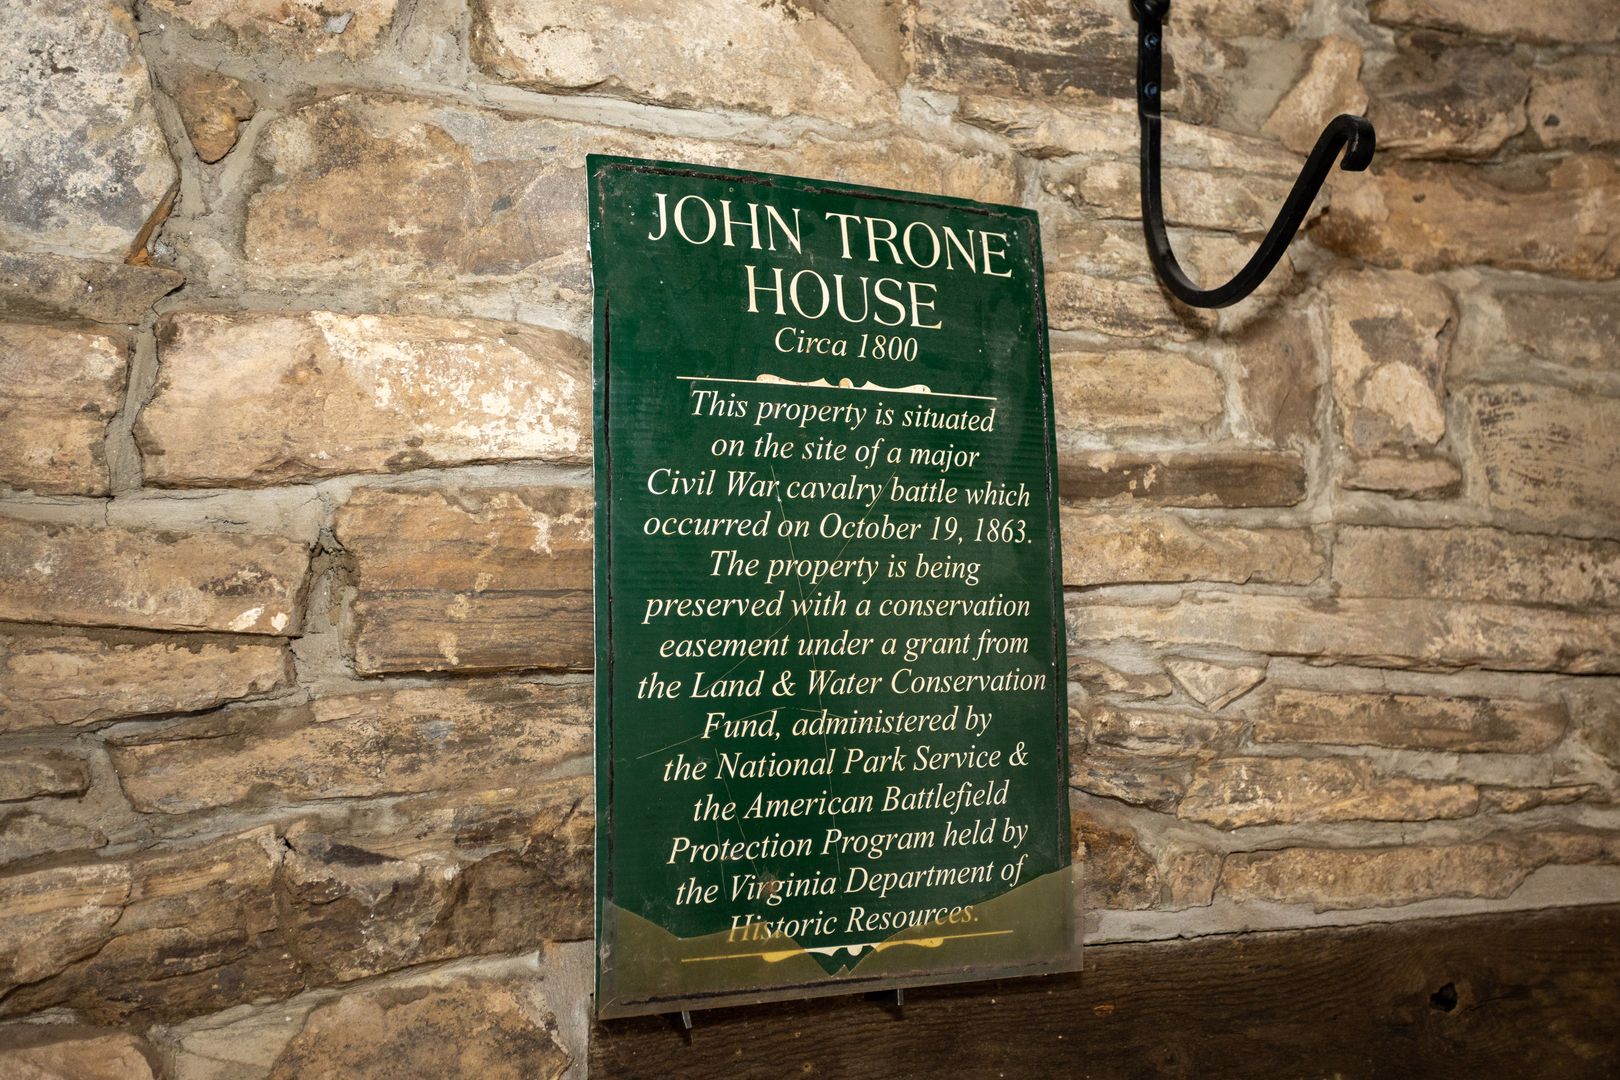 JOHN TRONE
HOUSE
Circa 1800
This property is situated
on the site of a major
Civil War cavalry battle which
occurred on October 19, 1863.
The property is being
preserved with a conservation
easement under a grant from
the Land & Water Conservation
Fund, administered by
the National Park Service &
the American Battlefield
Protection Program held by
the Virginia Department of
Historic Resources.